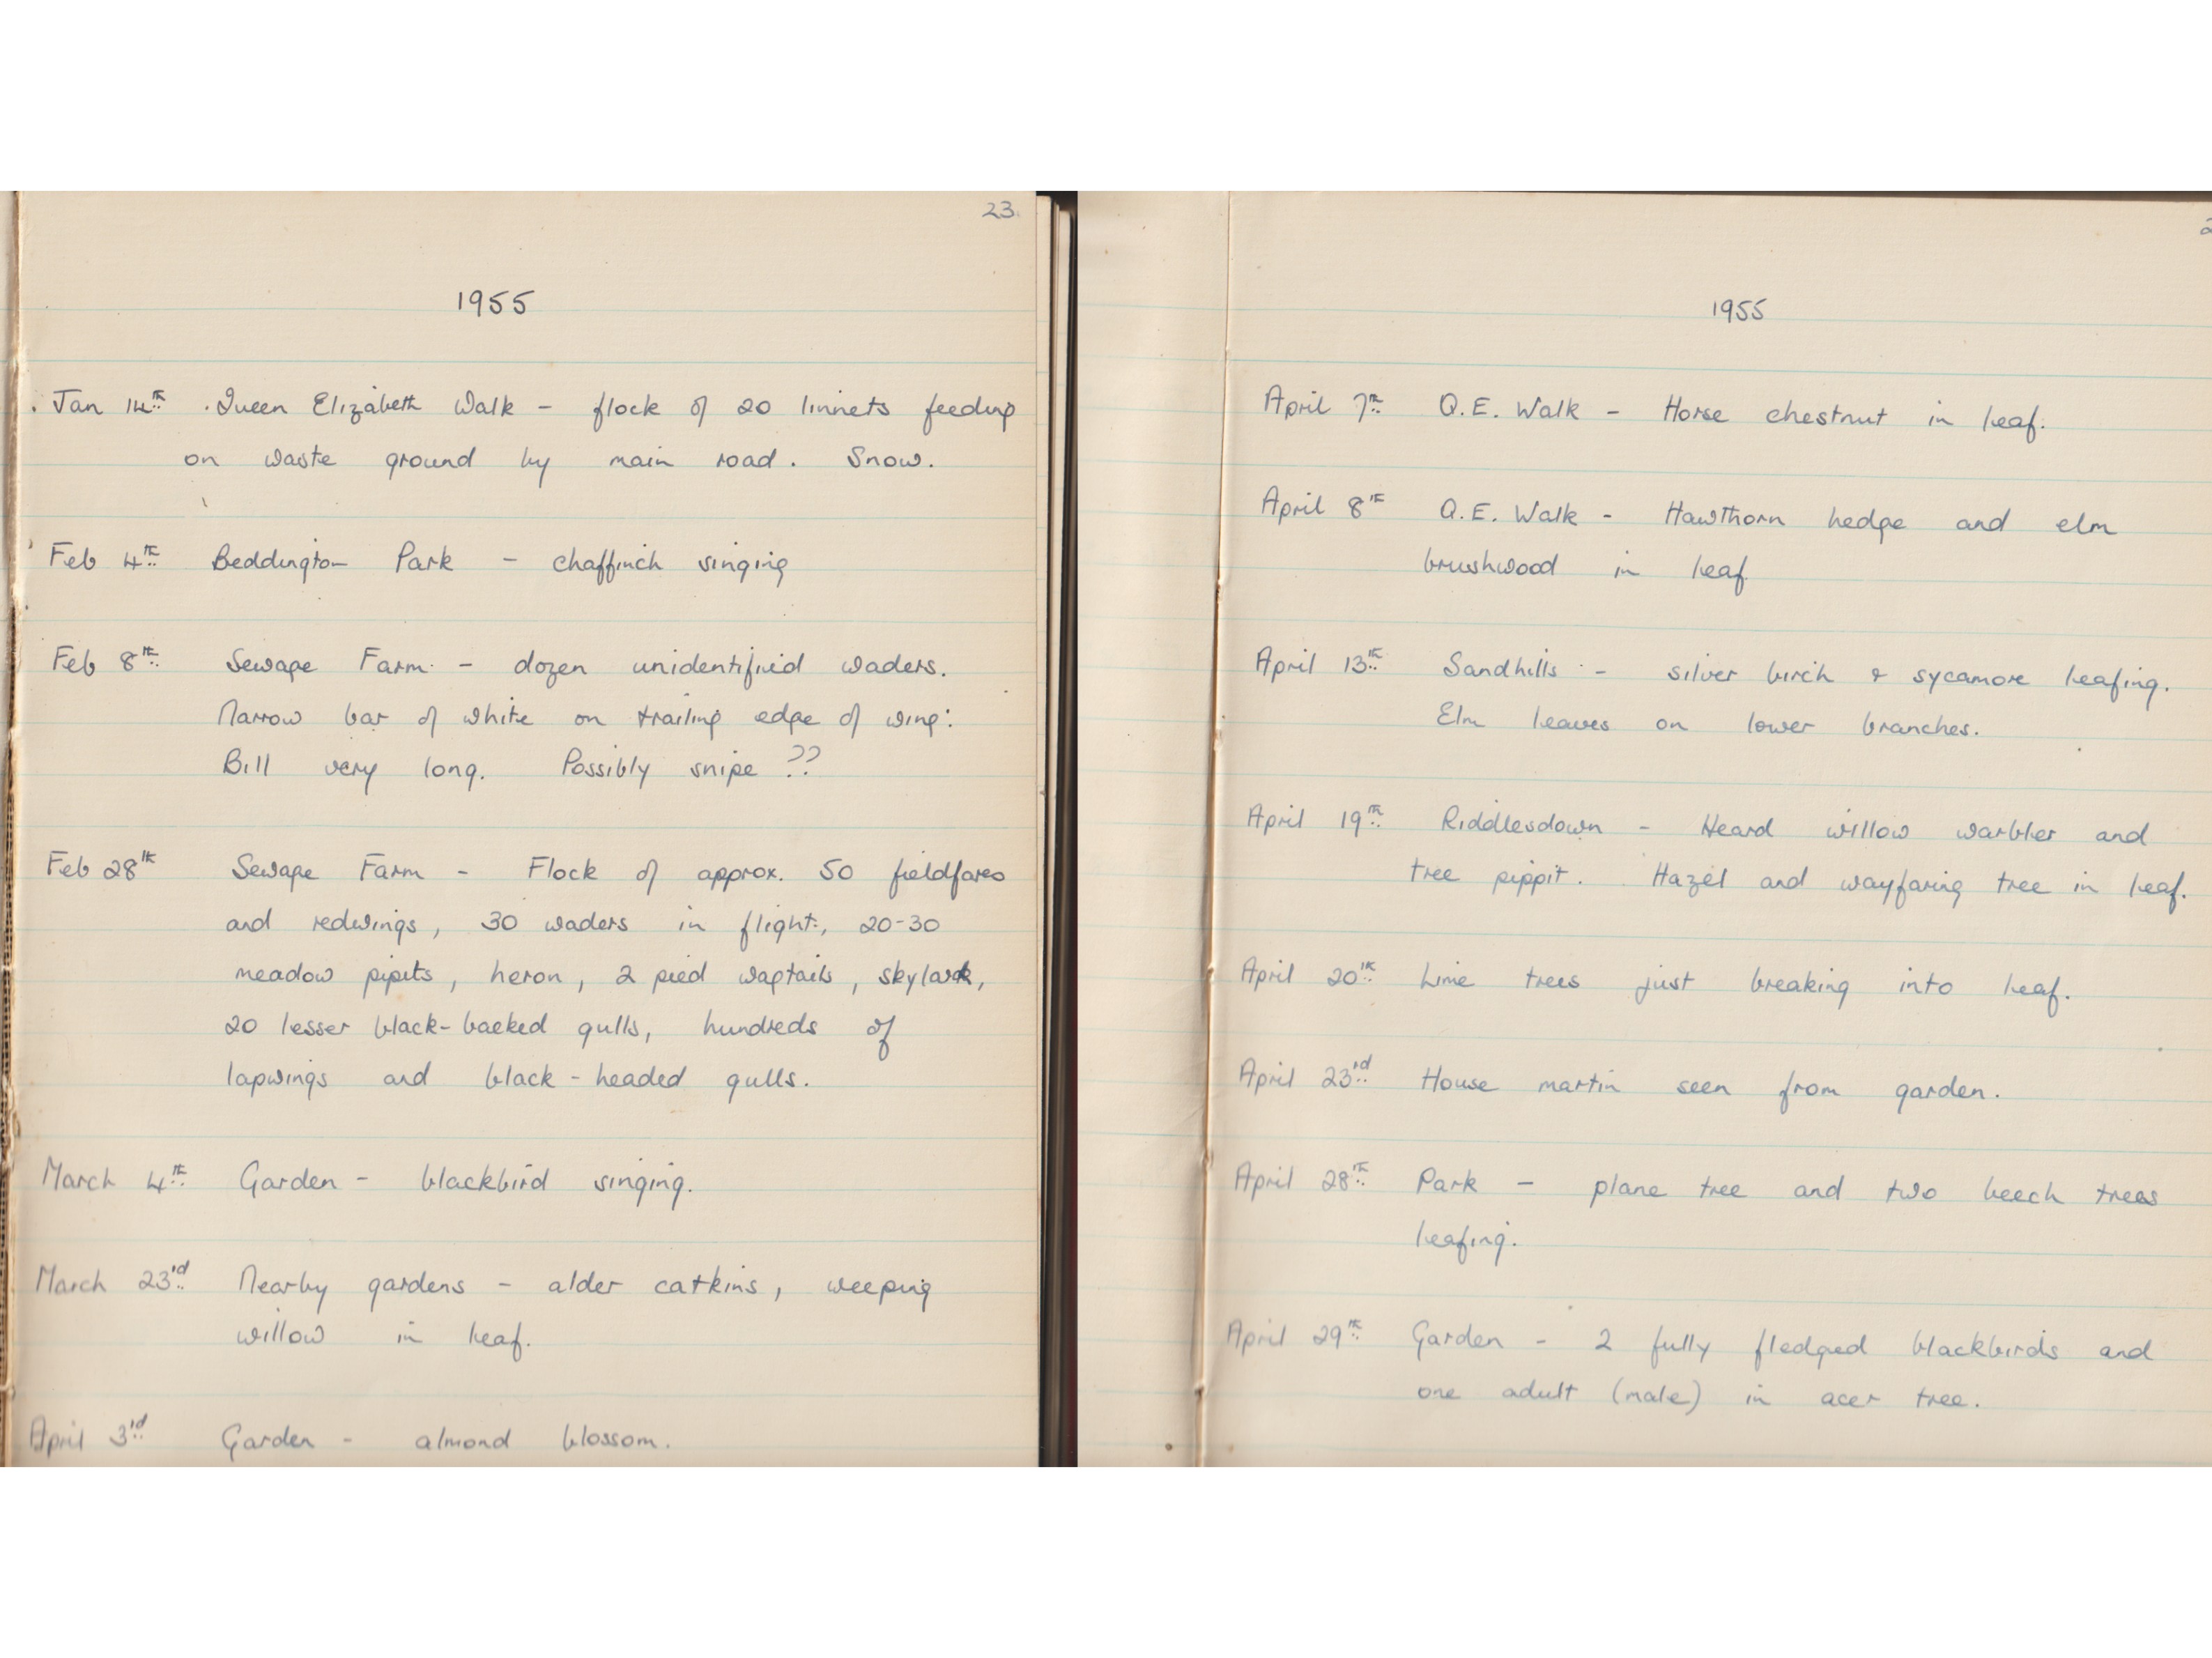 23.
1955
Jan 14th Queen Elizabeth Walk - flock of 20 linnets feeding
on waste ground by main road. Snow.
Feb 4th Beddington Park - chaffinch singing
Feb 8th Sewage Farm - dozen unidentified waders.
Narrow bar of white on trailing edge of wing.
Bill very long. Possibly snipe ??
Feb 28th Sewage Farm - Flock of approx. 50 fieldfares
and redwings, 30 waders in flight, 20-30
meadow pipits, heron, 2 pied wagtails, skylark,
20 lesser black-backed gulls, hundreds of
lapwings and black-headed gulls.
March 4th Garden - blackbird singing.
March 23rd Nearby gardens - alder catkins, weeping
willow in leaf.
April 3rd Garden - almond blossom.
1955
April 7th Q.E. Walk - Horse chestnut in leaf.
April 8th Q.E. Walk - Hawthorn hedge and elm
brushwood in leaf
April 13th Sandhills - silver birch & sycamore leafing.
Elm leaves on lower branches.
April 19th Riddlesdown - Heard willow warbler and
tree pippit. Hazel and wayfaring tree in leaf.
April 20th Lime trees just breaking into leaf.
April 23rd House martin seen from garden.
April 28th Park - plane tree and two beech trees
leafing.
April 29th Garden - 2 fully fledged blackbirds and
one adult (male) in acer tree.